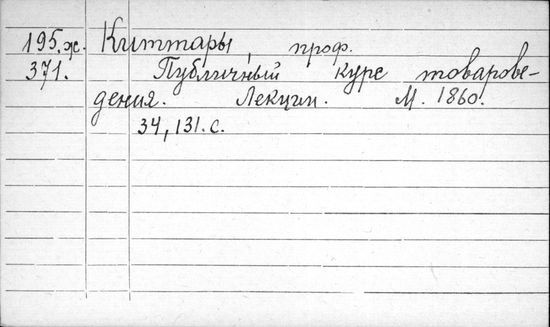 195.ж. Киттары, проф.
371. Публичный курс товарове-
дения. Лекции. М. 1860.
34, 131.с.